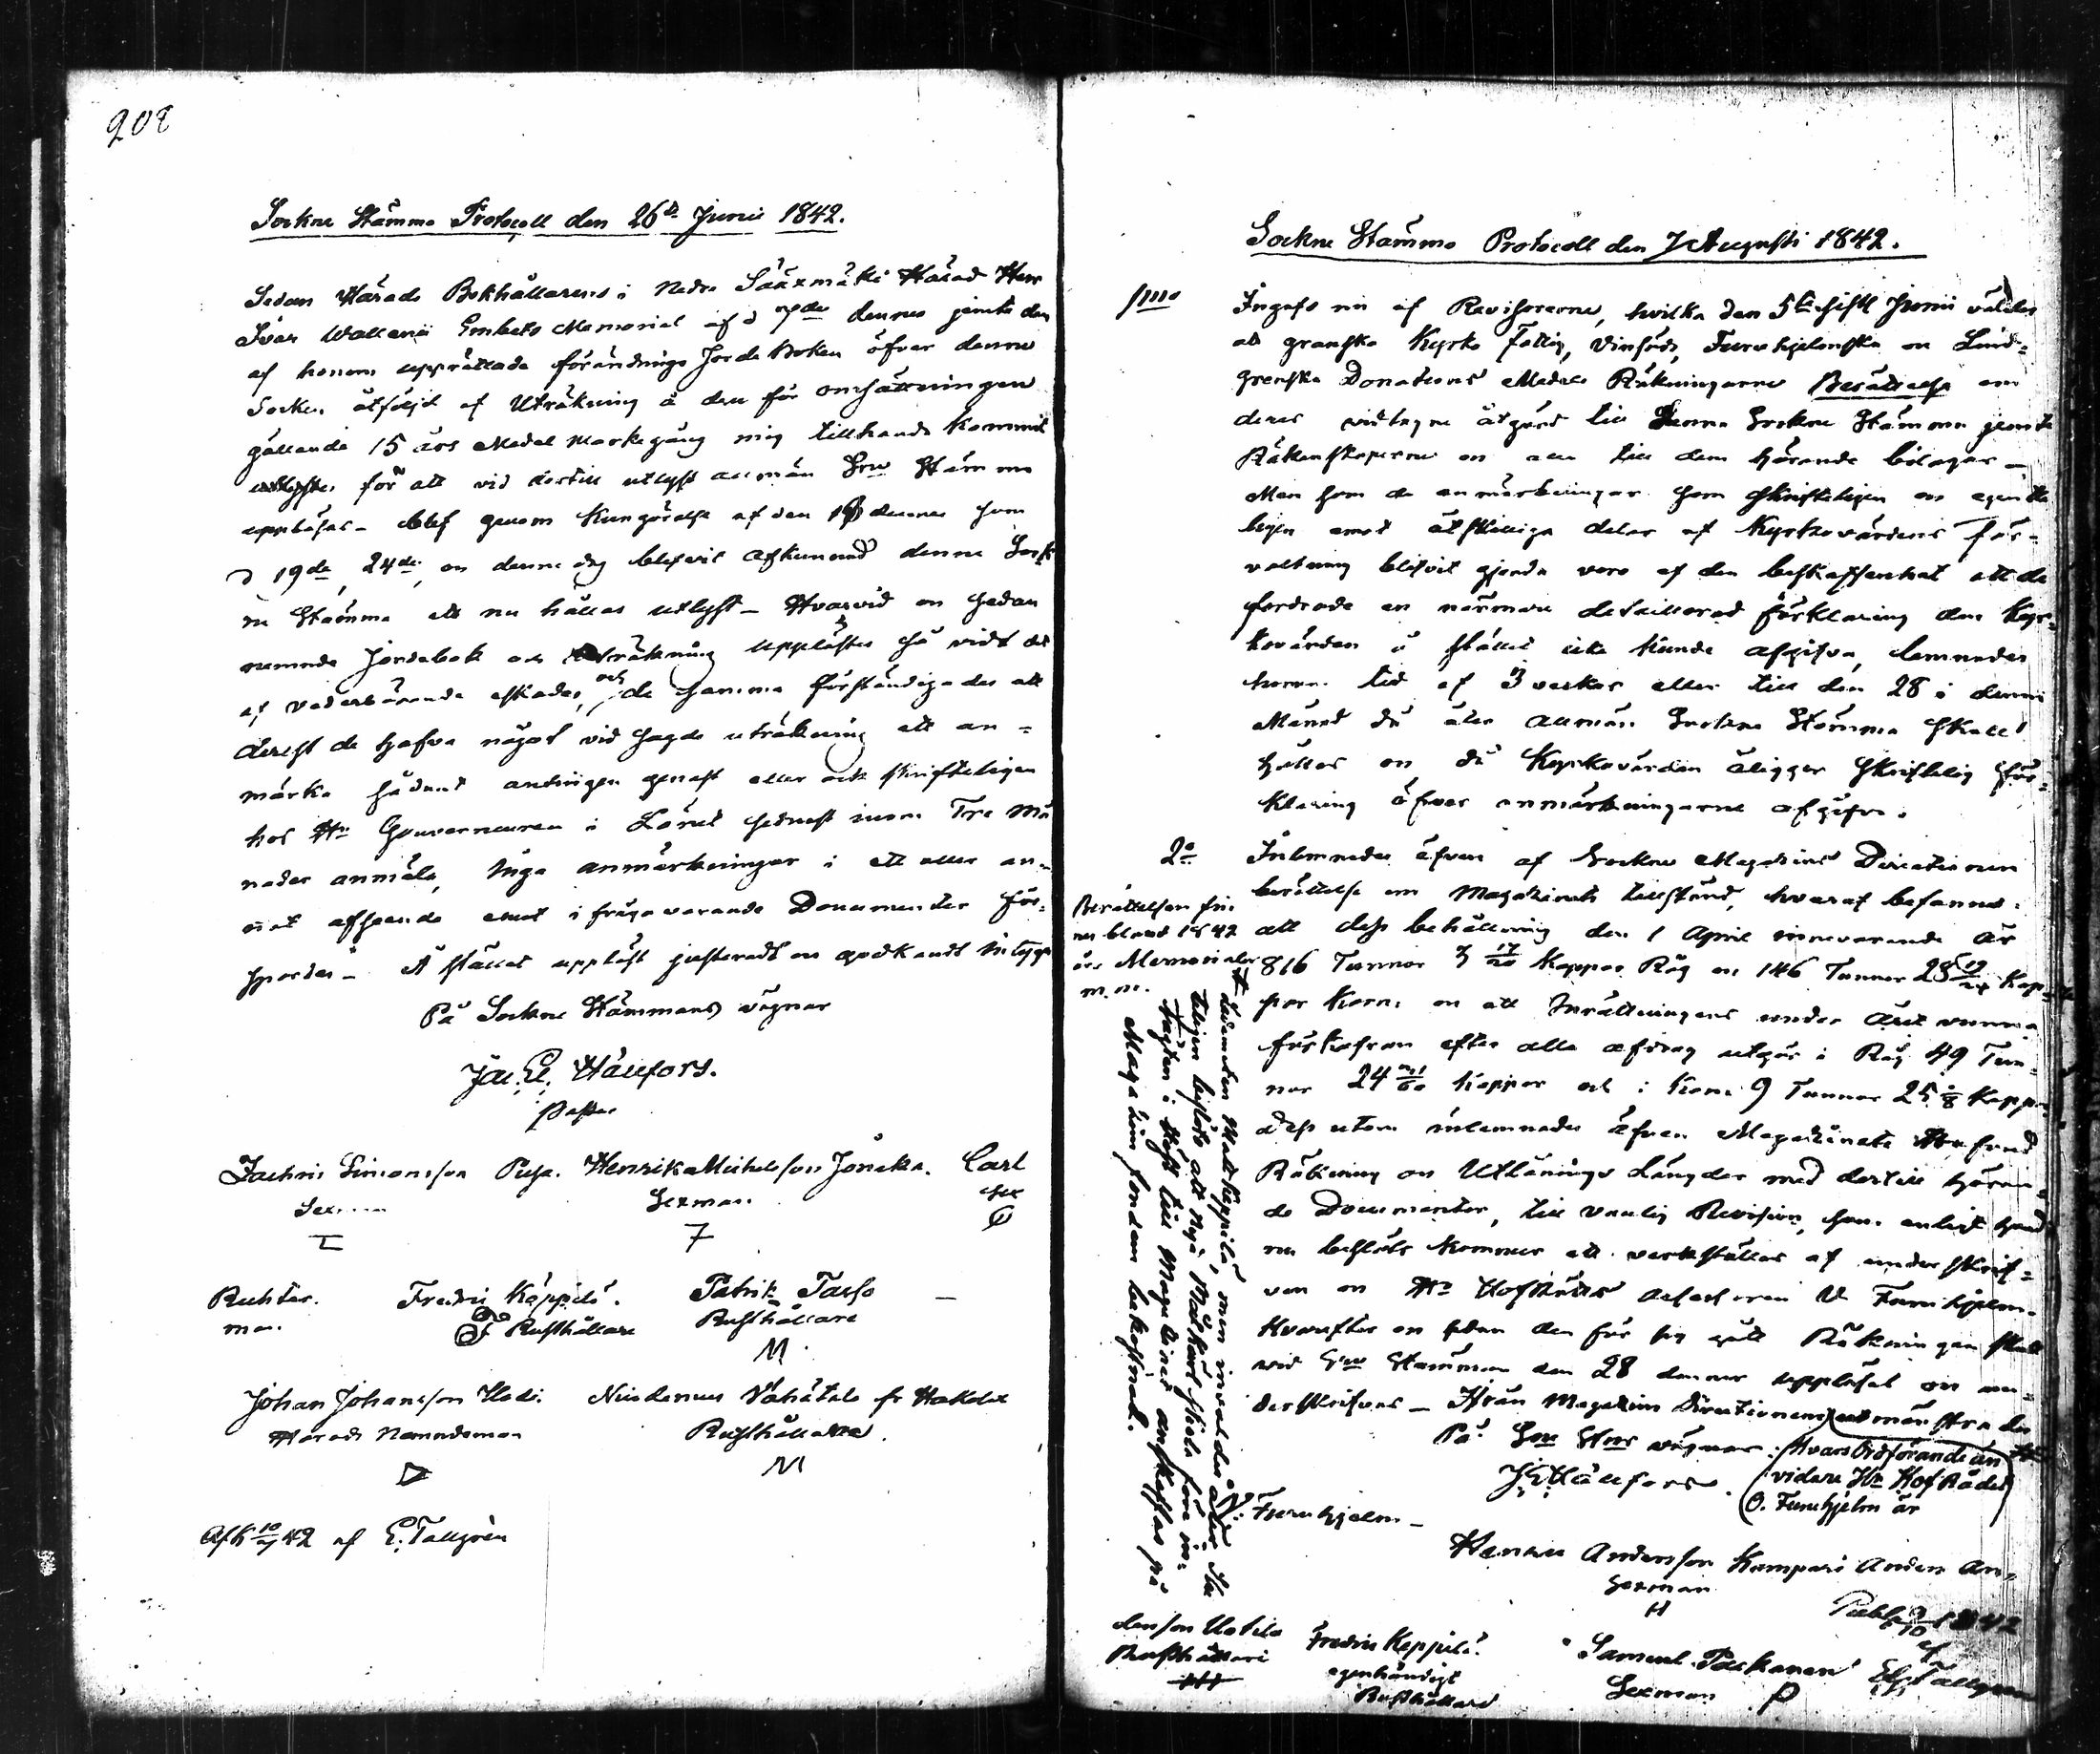 208
Sockne Stämmo Protocoll den 26de Junii 1842.
Sedan Härads Bokhållarens i Nedre Sääxmäki Härad Herr
Ivar Wallenii Embets Memorial af d 7de dennes jemte den
af honom upprättade förändrings Jorde Boken öfver denna
Socken åtföljd af Uträkning å den för omsättningen
gällande 15 års Medel Markegång mig tillhanda kommit
för att vid dertill utlyst allmän Sne Stämma
uppläsas – blef genom Kungörelse af den dennes som
d 19de, 24de, och denne dag blifvit afkunnad denne Sock
ne Stämma att nu hållas utlyst – Hvarvid och sedan
nemnde Jordebok och Uträkning upplästes så vidt det
af vederbörande åskades, och de samma förständigades att
derest de hafva något vid sagde uträkning att an=
märka sådant antingen genast eller ock skrifteligen
hos Hr Gouverneuren i Länet sednast inom Tre Må
nader anmäla, Inga anmärkningar i ett eller an=
nat afseende emot ifrågavarande Documenter för=
spordes – Å stället uppläst justeradt och godkändt intygar
På Sockne Stämmans vägnar
Jac. El. Hällfors.
Pastor
Zachris Simonsson Henrik Michelsson Jönckä. Carl
Sexman Sexman Sex
Richter. Fredric Käppilä. Patrik Tarfo
man Rusthållare Rusthållare
M
Johan Johansson Uoti. Nicodemus Vähätalo fr Hakola
Härads Nämndeman Rusthållare.
M
Afk 10/7 42 af E. Tallgren
Sockne Stämmo Protocoll den 7 Augusti 1842.
1mo Ingafs nu af Revisorerne, hvilka den 5te sistl Junii valdes
att granska Kyrko Fattig, Vinsäds, Furuhjelmska och Lind=
grenska Donations Medels Räkningarne Berättelse om
deras vidtagne åtgärd till denna Sockne Stämma jemte
Räkenskaperne och alla till dem hörande bilagor –
Men som de anmärkningar som skrifteligen och egentli
ligen emot åtskilliga delar af Kyrkovärdens för=
valtning blifvit gjorda voro af den beskaffenhet att de
fordrade en närmare detaillerad förklaring den Kyr=
kovärden å stället icke kunde afgifva, lemnades
honom tid af 3 veckor eller till den 28 i denna
Månad då åter allmän Sockne Stämma skall
hållas och då Kyrkovärden åligger skriftelig för=
klaring öfver anmärkningarne afgifva.
2o Inlemnades äfven af Sockne Magasins Directionen
berättelse om Magasinets tillstånd, hvaraf befanns
att dess behållning den 1 April innevarande år
är 816 Tunnor 3 17/20 Kappar Råg och 146 Tunnor 28 Kap=
par Korn och att Inrättningens under året vunna
förkofran efter alla afdrag utgör i Råg 49 Tun=
nor 24 Kappar och i Korn 9 Tunnor 25 Kappar
dess utom inlemnades äfven Magasinets
Räkning och Utlånings Längder med dertill höran=
de Documenter, till vanlig Revision, som enligt hvad
nu beslöts kommer att verkställas af underskrif=
ven och Hr Hofrätts Assessoren V. Furuhjelm.
Hvarefter och sedan den för sig gått Räkningen skall
vid Sne Stämman den 28 dennes uppläsas och un=
derskrifvas – Ifrån Magasins Directionen utmönstrades
Berättelsen fin
nes bland 1842
års Memorialer
m. m.
ledamoten Matts Keppilä, men invaldes åter. Ski
ligen beslöts att nya Målkärl
till Magasinet anskaffas på
Magasins fondens bekostnad.
På Sne Stns vägnar: (Hvars Ordförande än
J. E. Hällfors. vidare Hr Hof Rådet
O. Furuhjelm är
V. Furuhjelm –
Henric Andersson Kampari Anders An=
Sexman
H
dersson Uotila Fredric Keppilä. Samuel Packanen
Rusthållare egenhändigt Sexman P
Rusthållare
Publ. 1842
af
E. Tallgren